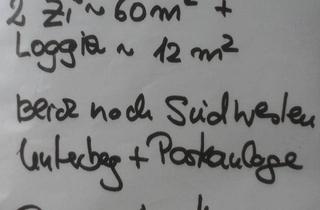 2 Zi ~ 60m² +
Loggia ~ 12 m²
beide nach Südwesten
Unterberg + Parkanlage